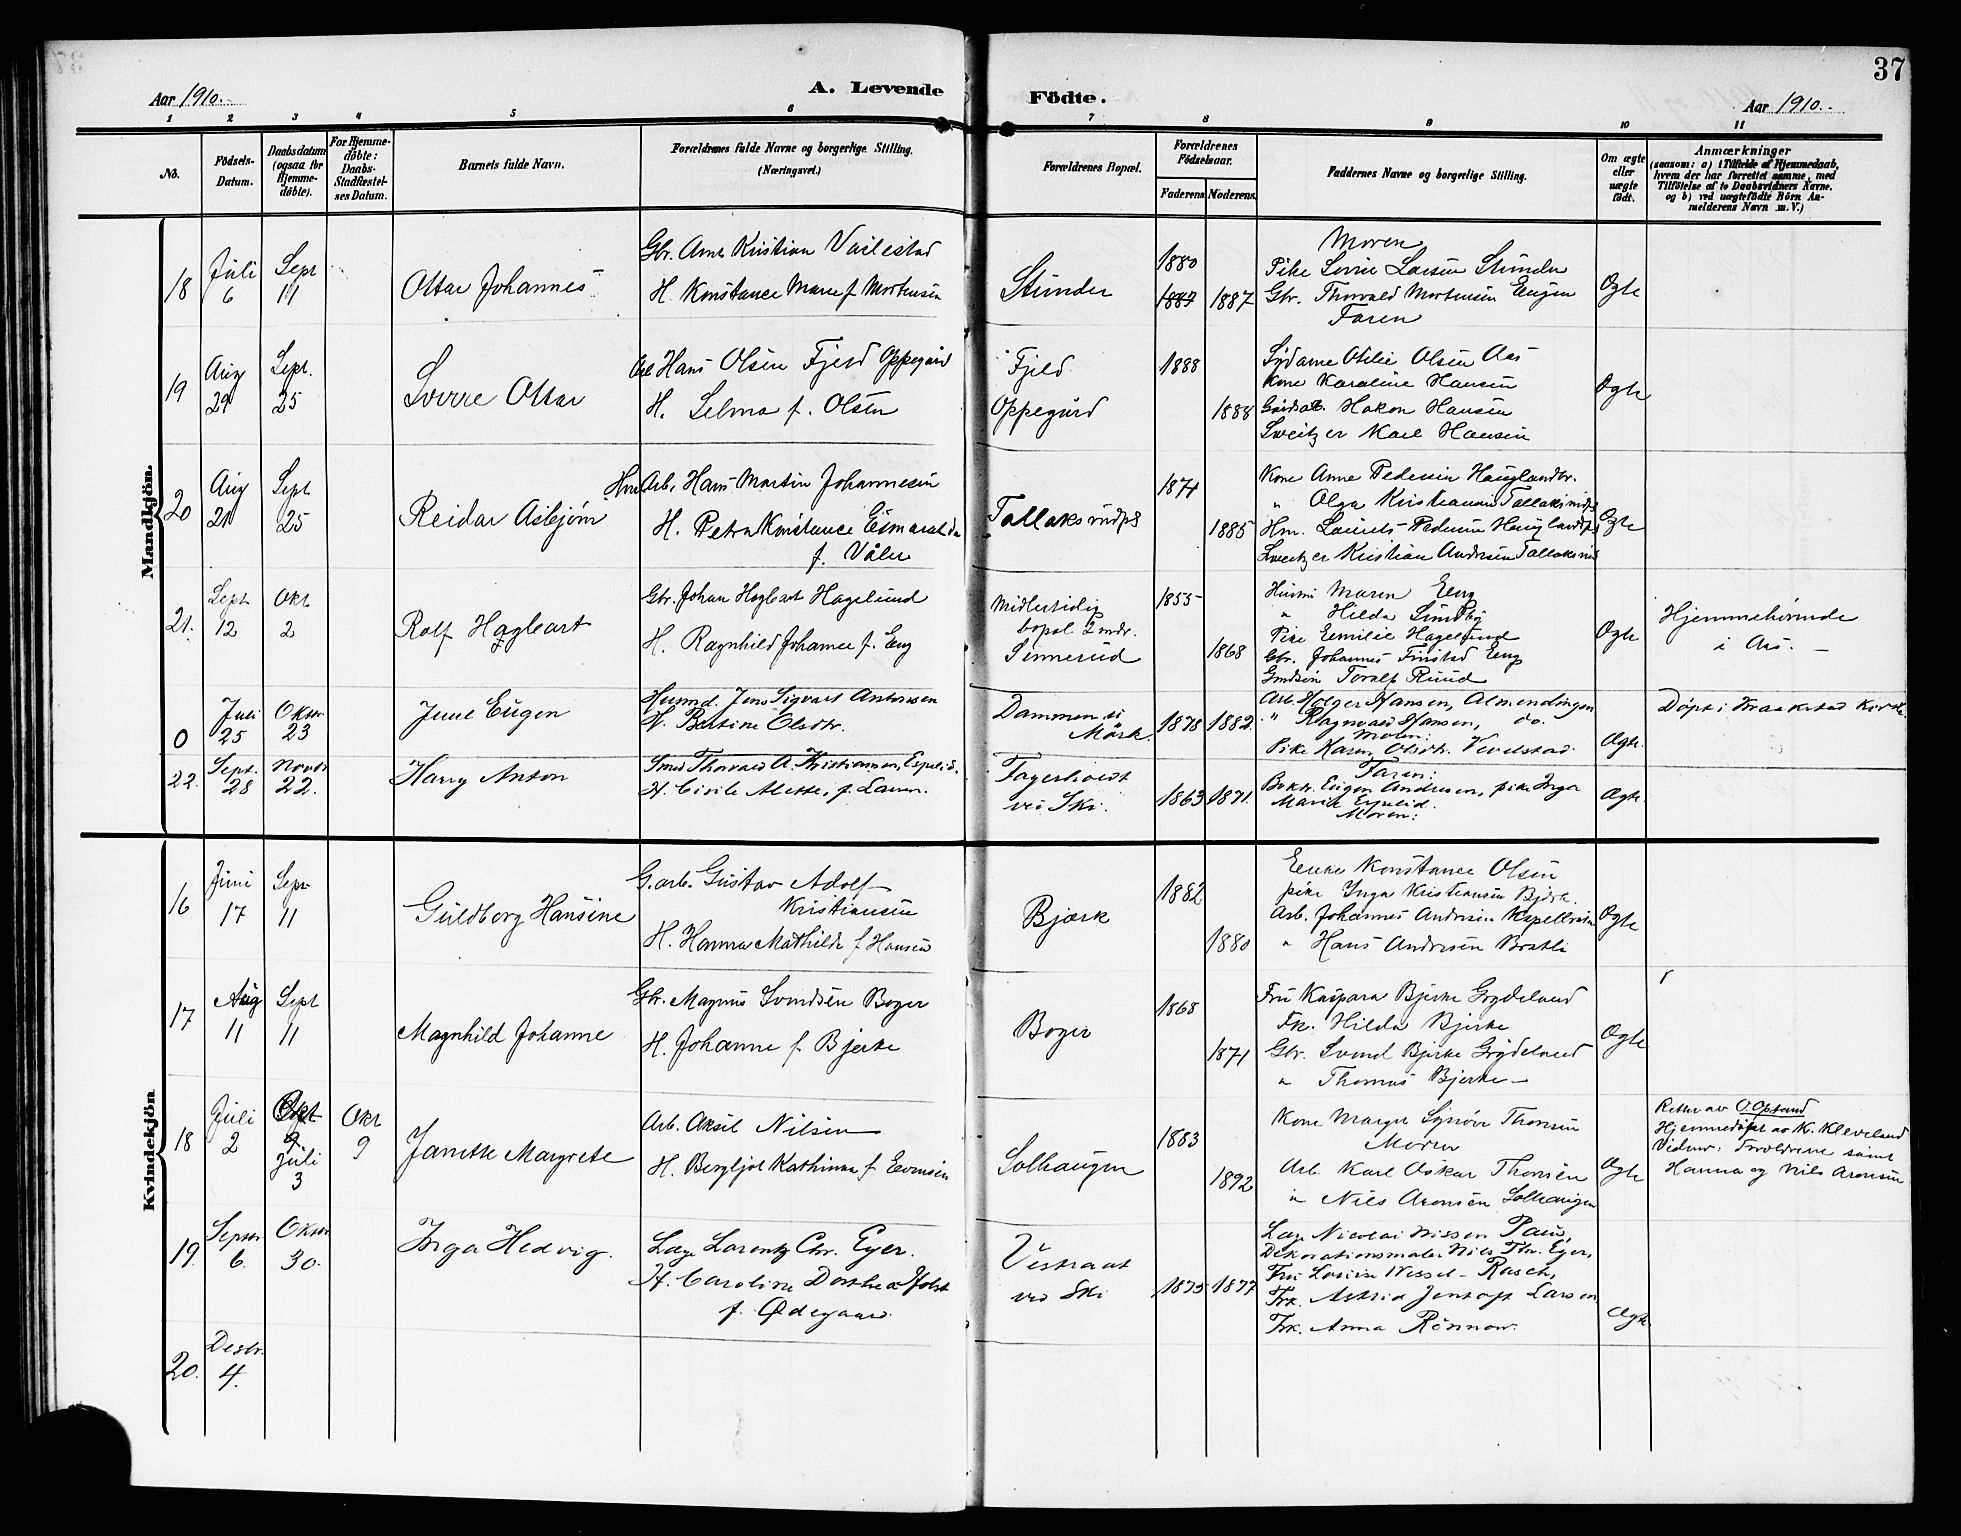 37
Aar 1910.
A. Levende
Födte.
Aar 1910.
1 2 3 4 5 6 7 8 9 10 11
No.
Födsels-Datum.
Daabsdatum (ogsaa for Hjemme-döbte).
For Hjemme-döbte: Daabs-Stadfæstel-ses Datum.
Barnets fulde Navn.
Forældrenes fulde Navne og borgerlige Stilling. (Næringsvei.)
Forældrenes Bopæl.
Forældrenes Födselsaar.
Faderens Moderens
Faddernes Navne og borgerlige Stilling.
Om ægte eller uægte födt.
Anmærkninger
(saasom: a) i Tilfælde af Hjemmedaab,
hvem der har forrettet samme, med
Tilföielse af to Daabsvidners Navne.
og b) ved uægtefödte Börn An-
melderens Navn m. V.)
Mandkjön.
18 Juli 6 Sept 11 Ottar Johannes
Gbr. Arne Kristian Vailestad
H. Konstance Marie f. Mortensen
Stunder
1880
1887 1887
Moren
Pike Lovise Larsen Stunder
Gbr. Thorvald Mortensen Engen
Faren
Ogte
19 Aug 29 Sept. 25 Sverre Ottar
Arb Hans Olsen Fjeld Oppegård
H. Selma f. Olsen
Fjeld
Oppegård
1888
1888
Sydame Otilie Olsen Aas
Kone Karoline Hansen
Gårdsarb. Hakon Hansen
Sveitzer Karl Hansen
Ogte
20 Aug 21 Sept 25 Reidar Asbjørn
Hm. Arb. Hans Martin Johannesen
H. Petra Konstance Esmaralda
f. Våler
Tallaksrudpl
1871
1885
Kone Anne Pedersen Hauglandbr.
" Olga Kristiansen Tallaksrudpl
Hm. Laurits Pedersen Hauglandpl
Sveitzer Kristian Andersen Tallaksrud
Ogte
21. Sept 12 Okt 2 Rolf Hagbart
Gbr. Johan Hagbart Hagelund
H. Ragnhild Johanne f. Eng
Midlertidig
bopæl 2 mdr.
Finnerud
1855
1868
Hustru Maren Eng
" Hilda Sundby
Pike Emilie Hagelund
Gbr. Johannes Finstad Eng
Grdsøn Toralf Ruud
Ogte
Hjemmehørende
i Aas. -
0 Juli 25 Oktbr. 23 Juul Eugen
Husmd. Jens Sigvart Antonsen
H. Bertine Olsdtr.
Dammen u
Mörk.
1878 1882.
Arb. Holger Hansen, Almendingen
" Ragnvald Hansen, do.
Moren:
Pike Karen Olsdtr. Vevelstad.
Ægte.
Döpt i Kraakstad Kirke
22. Sept. 28 Novbr 22. Harry Anton
Smed Thorvald A. Kristiansen, Espelid.
H. Cicile Alette, f. Larsen.
Fagerholdt
ved Ski.
1863 1871.
Faren:
Bokh. Eugen Andresen, pike Inga
Marie Espelid.
Moren:
Ægte.
Kvindekjön
16 Juni 17 Sept 11 Guldborg Hansine
G.arb. Gustav Adolf
Kristiansen
H. Hanna Mathilde f Hansen
Bjørk
1882
1880
Enke Konstance Olsen
pike Inga Kristiansen Bjørk.
Arb. Johannes Andersen Kapellveien
" Hans Andersen Bratli
Ogte
17 Aug 11 Sept 11 Magnhild Johanne
Gbr. Magnus Svendsen Boger
H. Johanne f. Bjerke
Boger
1868
1871
Fru Kaspara Bjerke Grydeland
Frk. Hilda Bjerke
Gbr. Svend Bjerke Grydeland
" Thomas Bjerke
Ogte
18 Juli 2 Okt 9. Juli 3 Okt 9 Janette Margrete
Arb. Aksel Nilsen
H. Bergljot Kathinka f Evensen
Solhaugen
1883
1892
Kone Margit Synøve Thorsen
Moren
Arb. Karl Oskar Thorsen
" Nils Aronsen Solhaugen
Ogte
Rettet av O. Opsand
Hjemmedøpt av K. Kleveland
Vidner: Foreldrene samt
Hanna og Nils Aronsen
19. Septbr 6. Oktbr. 30. Inga Hedvig.
Læge Lorentz Chr. Eger.
H. Caroline Dorthea Holst
f. Ødegaard.
Vestraat
ved Ski
1875 1877
Læge Nicolai Nissen Paus,
Dekorationsmaler Nils Thr. Eger,
Fru Lovise Wessel-Rasch,
Frk. Astrid Jentoft Larsen
Frk. Anna Rönnow.
Ægte.
20. Desbr. 4.